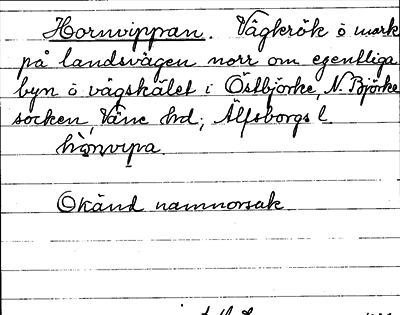 Hornvippan. Vägkrök o mark
på landsvägen norr om egentliga
byn o vägskälet i Östbjörke, N. Björke
socken, Väne hd; Älfsborgs l.
hònvipa.
Okänd namnorsak